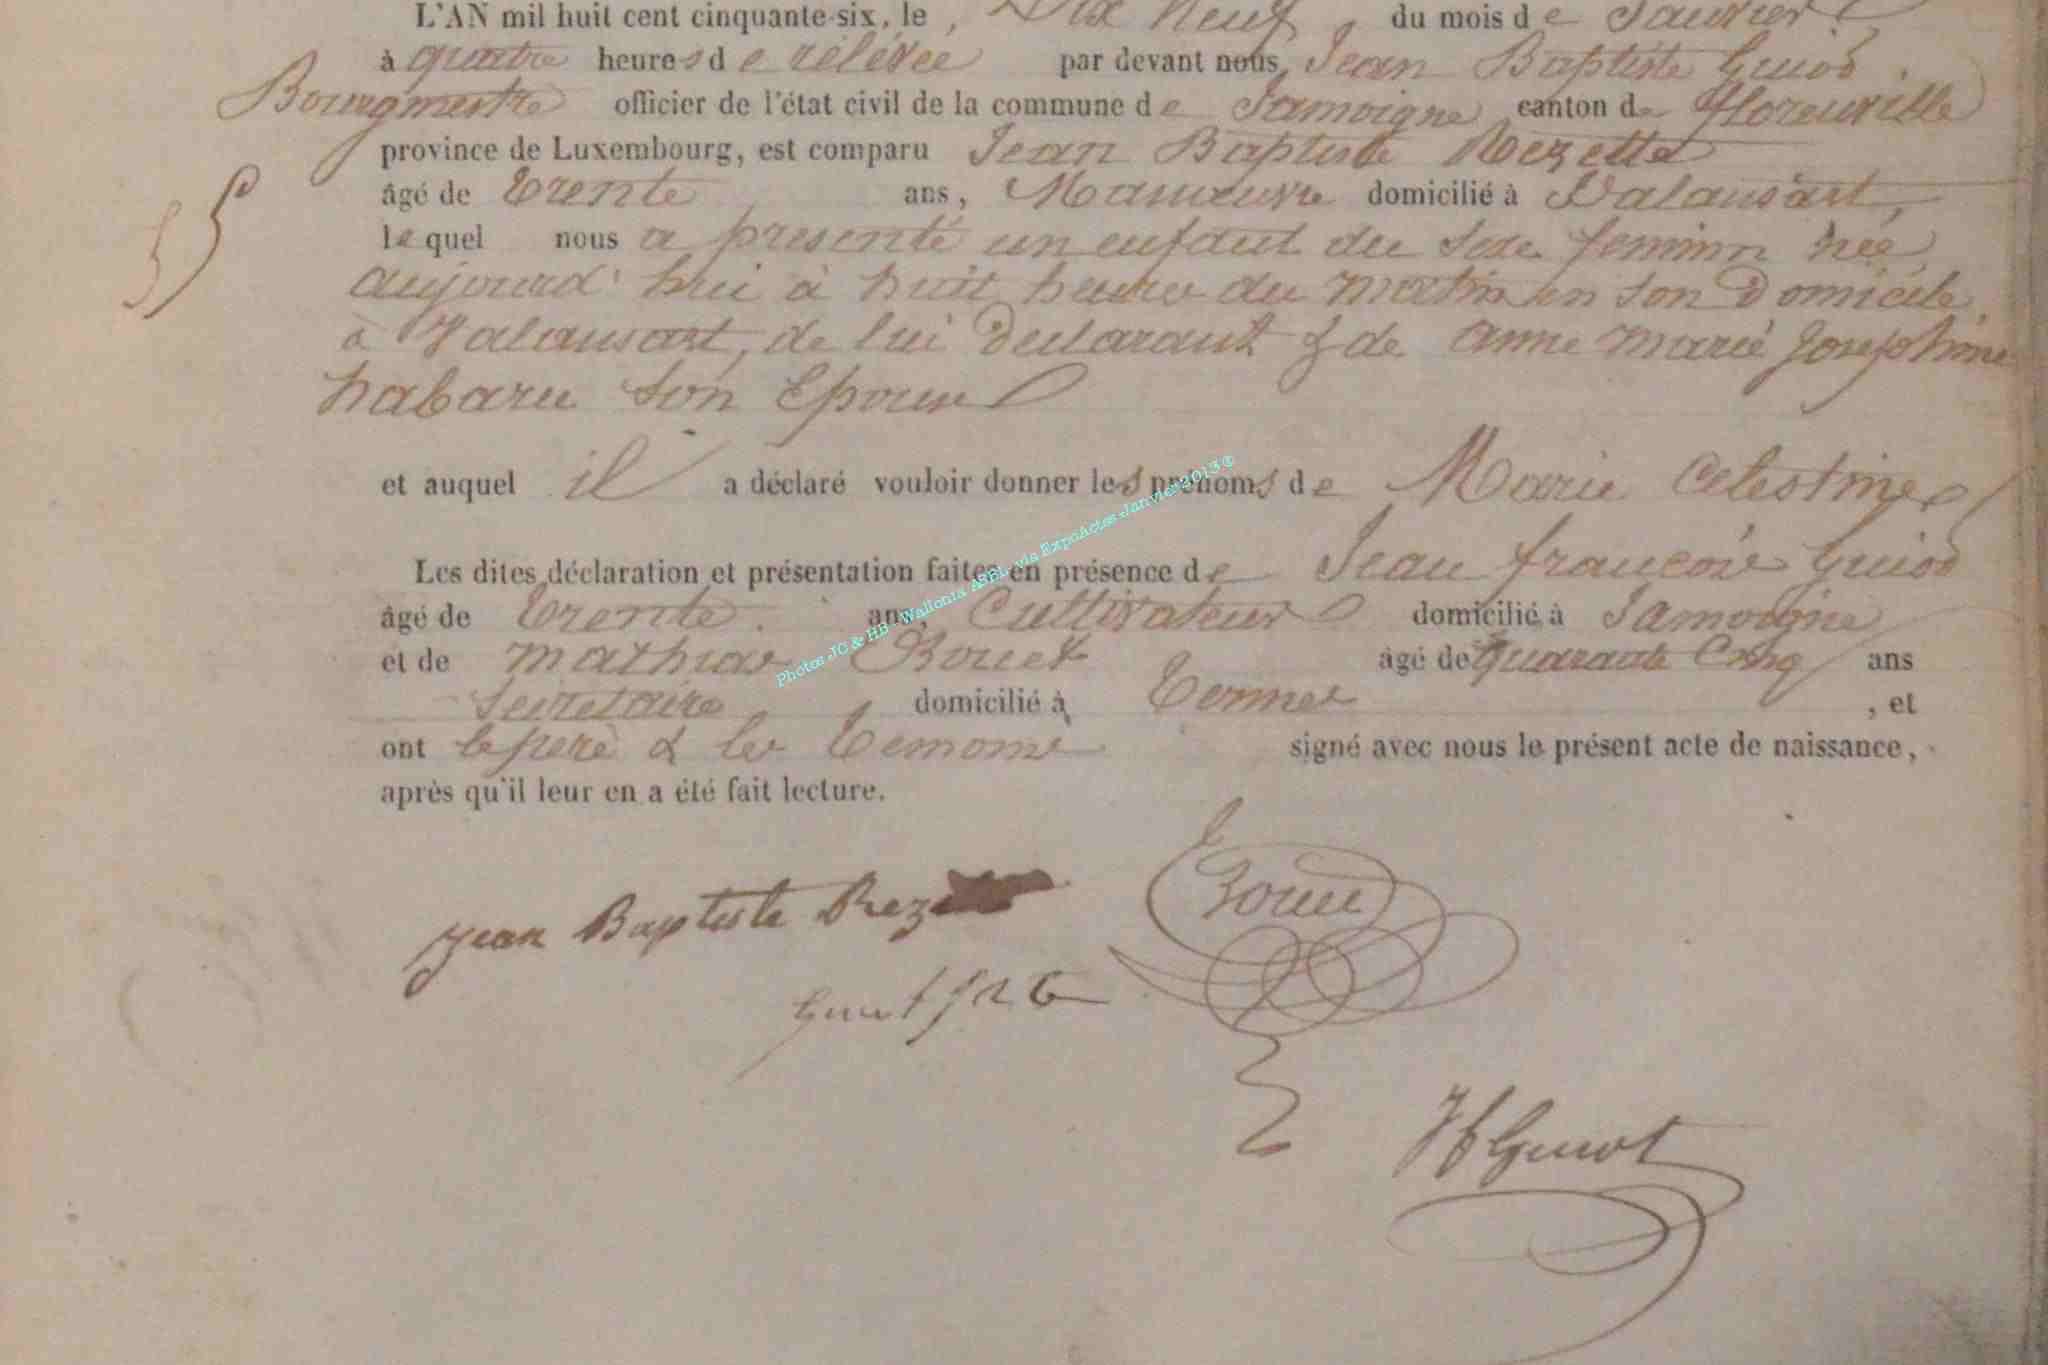 L'AN mil huit cent cinquante-six, le Dix neuf du mois de Janvier
à quatre heures de rélévée par devant nous Jean Baptiste Guiot
Bourgmestre officier de l'état civil de la commune de Jamoigne canton de florenville
province de Luxembourg, est comparu Jean Baptiste Rezette
âgé de trente ans, Manœuvre domicilié à Valansart,
lequel nous a presenté un enfant du sexe feminin née
aujourd'hui à huit heures du matin en son Domicile
à Valansart, de lui declarant & de anne marie Josephine
habaru son Epouse
et auquel il a déclaré vouloir donner les prénoms de Marie Celestine
Les dites déclaration et présentation faites en présence de Jean françois Guiot
âgé de trente ans, Cultivateur domicilié à Jamoigne
et de mathias Bouet âgé de quarante Cinq ans
secretaire domicilié à termes , et
ont le père & les temoins signé avec nous le présent acte de naissance,
après qu'il leur en a été fait lecture.
Photos JC & HB - Wallonia ASBL via ExpoActes - Janvier 2013 ©
Jean Baptiste Rez
Guiot
JfGuiot